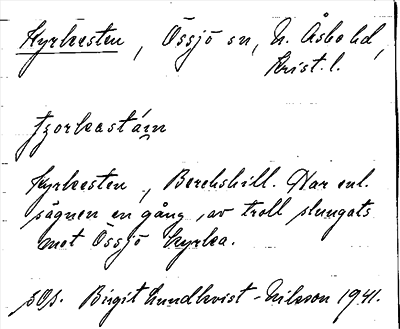 Kyrkesten, Össjö sn, N. Åsbo hd,
Krist. l.
Kyrkesten, Berckshill. Har enl.
sägnen en gång av troll slungats
mot Össjö kyrka.
sOp. Birgit Lundkvist-Nilsson 1941.